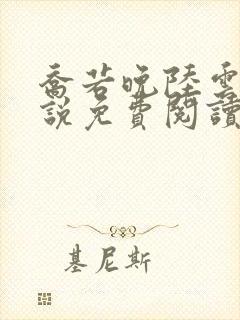 喬若晚陸雲
說免費閱讀
基尼斯